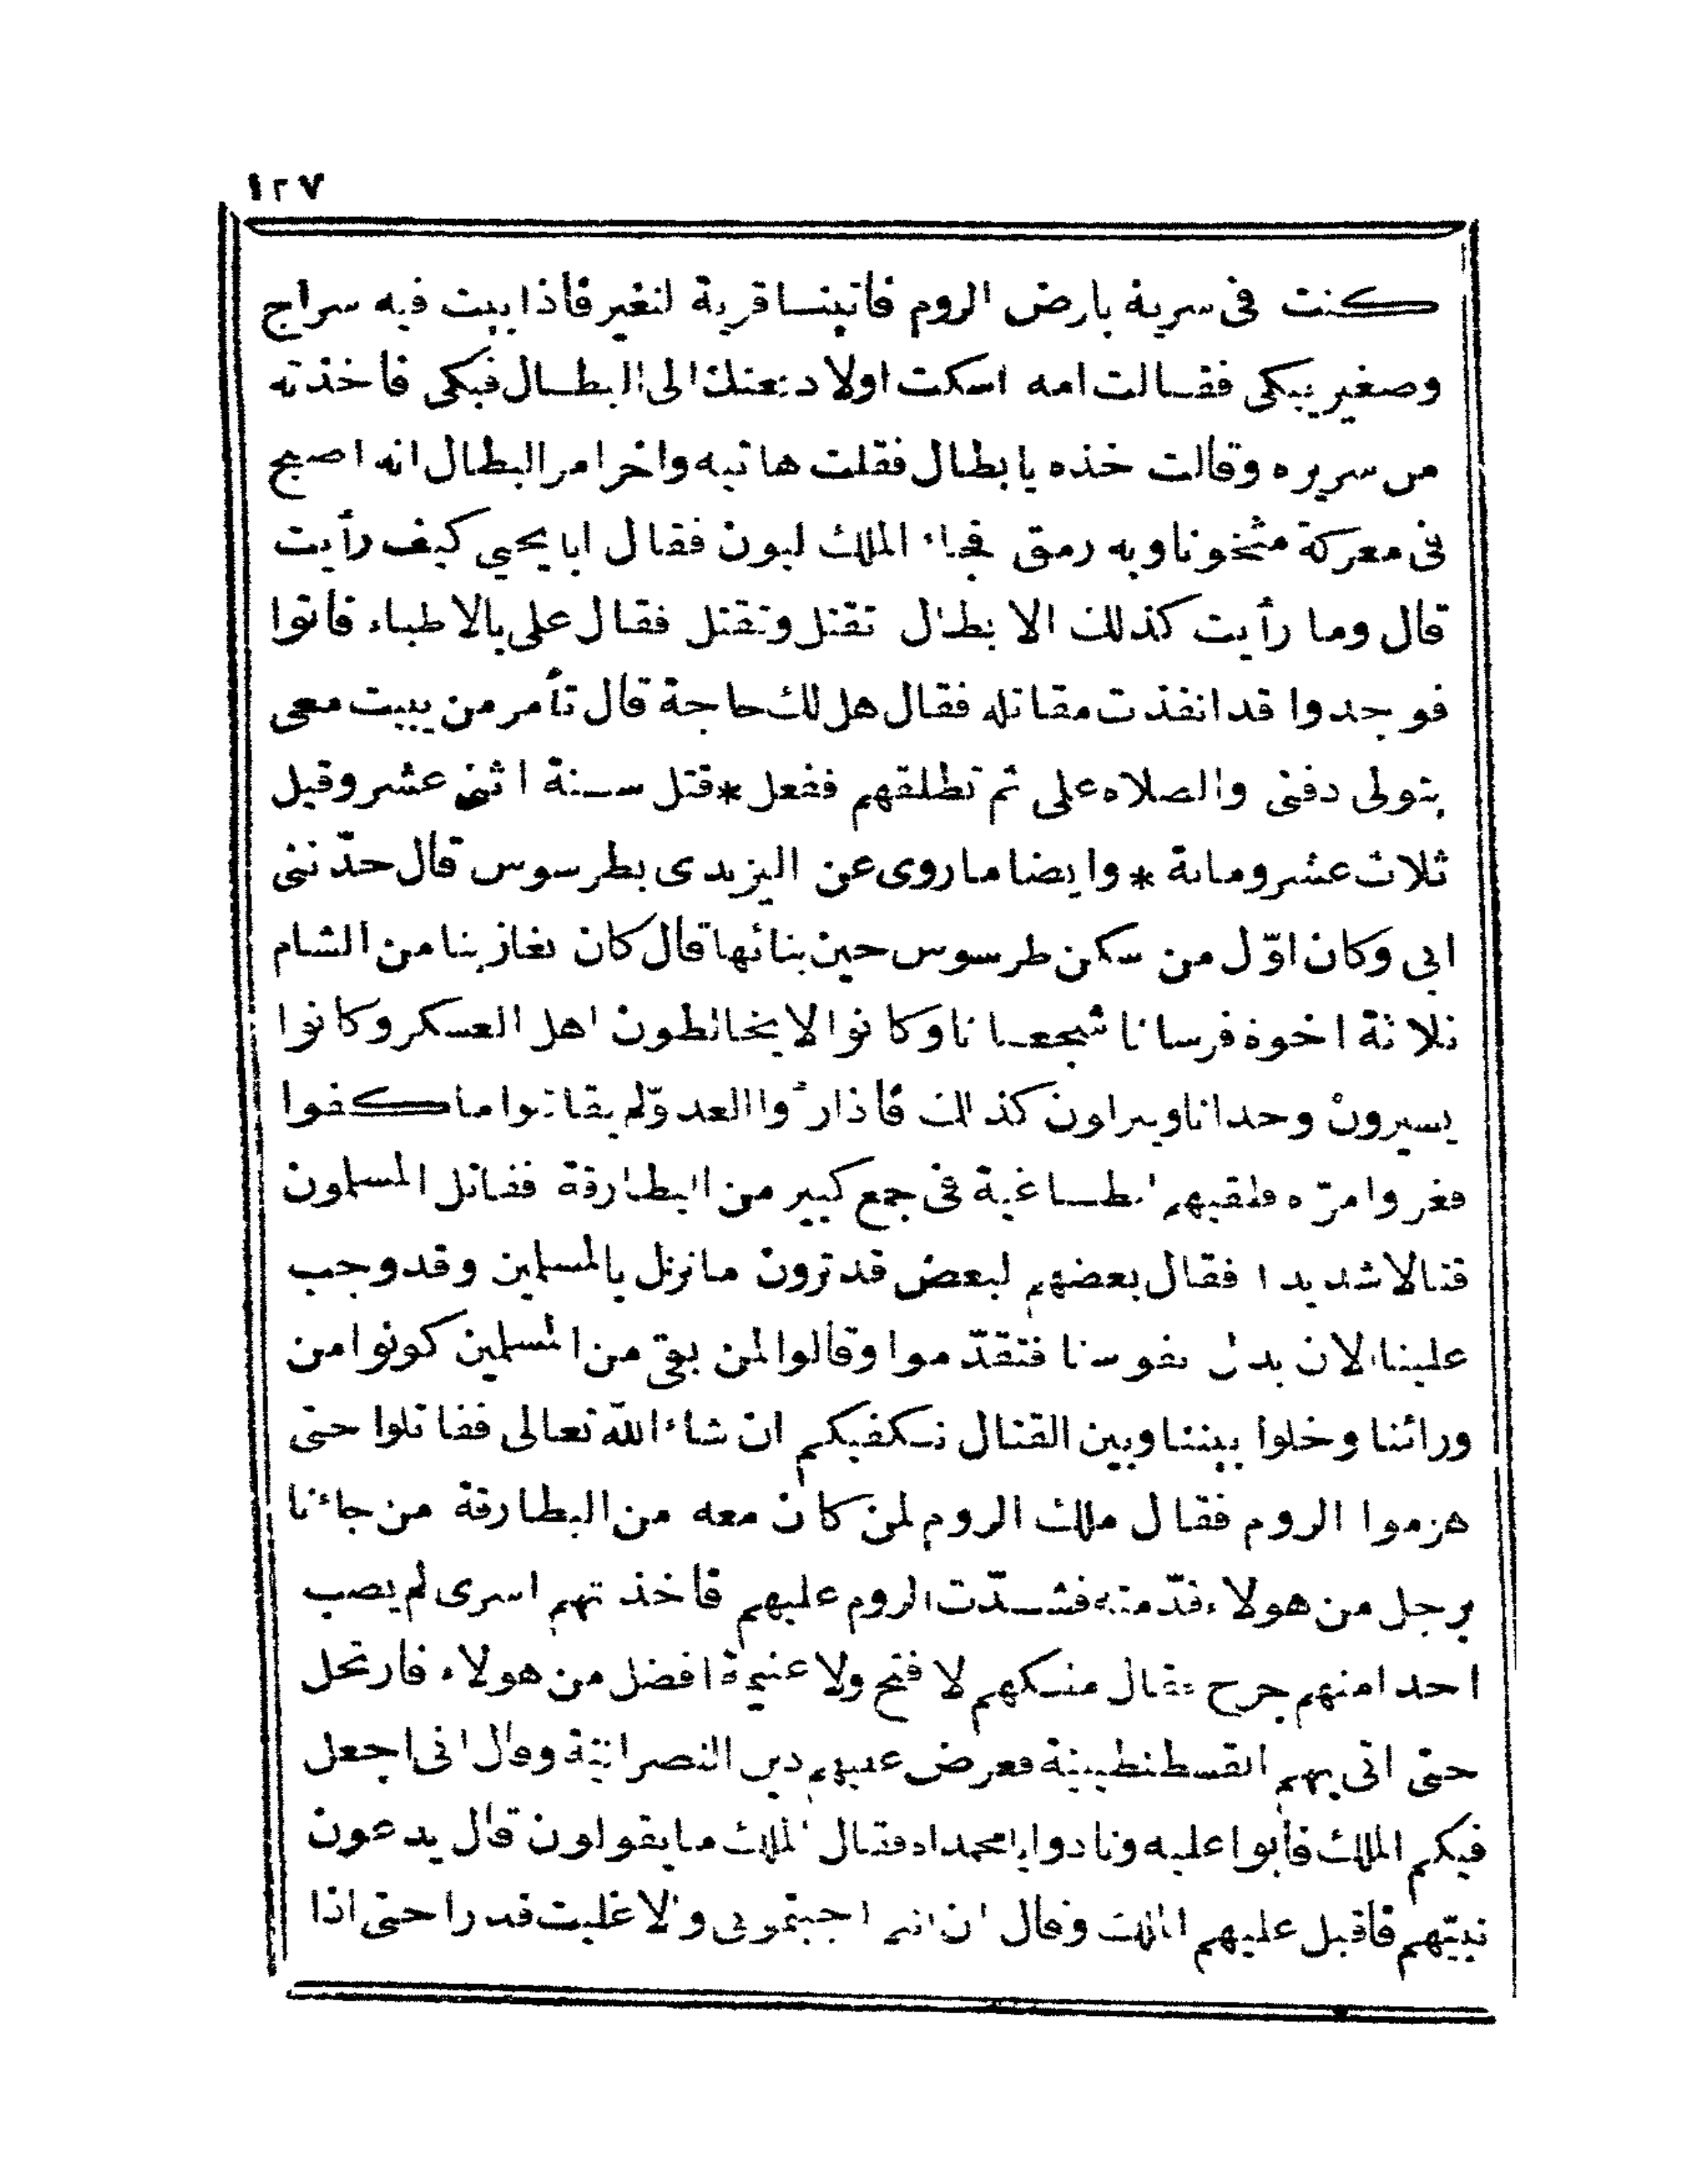 ١٢٧
كنت فى سرية بارض الروم فاتينا قرية لنغير فاذا بيت فيه سراج
وصغير يبكى فقالت امه اسكت اولا دفعتك الى البطال فبكى فاخذته
من سريره وقالت خذه يا بطال فقلت هاتيه واخر امر البطال انه اصبح
فى معركة مثخونا وبه رمق فجاء الملك ليون فقال ابا يحيى كيف رأيت
قال وما رأيت كذلك الابطال تقتل وتقتل فقال على بالاطباء فاتوا
فوجدوا قد انفذت مقاتله فقال هل لك حاجة قال تأمر من يبيت معى
يتولى دفنى والصلاه على ثم تطلقهم ففعل * قتل سنة اثنى عشر وقيل
ثلاث عشر ومائة * وايضا ما روى عن اليزيدى بطرسوس قال حدّثنى
ابى وكان اوّل من سكن طرسوس حين بنائها قال كان يغازينا من الشام
ثلاثة اخوة فرسانا شجعانا وكانوا لا يخالطون اهل العسكر وكانوا
يسيرون وحدانا وينزلون كذلك فاذا رأوا العدوّ لم يقاتلوا ما كفوا
فغزوا مرّه فلقيهم الطاغية فى جمع كبير من البطارقة فقاتل المسلمون
قتالا شديدا فقال بعضهم لبعض قد ترون ما نزل بالمسلمين وقد وجب
علينا الان بدل نفوسنا فتقدّموا وقالوا لمن بقى من المسلمين كونوا من
ورائنا وخلوا بيننا وبين القتال نكفيكم ان شاء الله تعالى فقاتلوا حتى
هزموا الروم فقال ملك الروم لمن كان معه من البطارقة من جاءنا
برجل من هولاء قدّمته فشدّت الروم عليهم فاخذتهم اسرى لم يصب
احدا منهم جرح فقال منكهم لا فتح ولا غنيمة افضل من هولاء فارتحل
حتى اتى بهم القسطنطينية فعرض عليهم دين النصرانيّة وقال انى اجعل
فيكم الملك فأبوا عليه ونادوا يامحمداه فقال الملك ما يقولون قال يدعون
نبيّهم فاقبل عليهم الملك وقال ان انتم اجبتمونى والا غليت قدرا حتى اذا